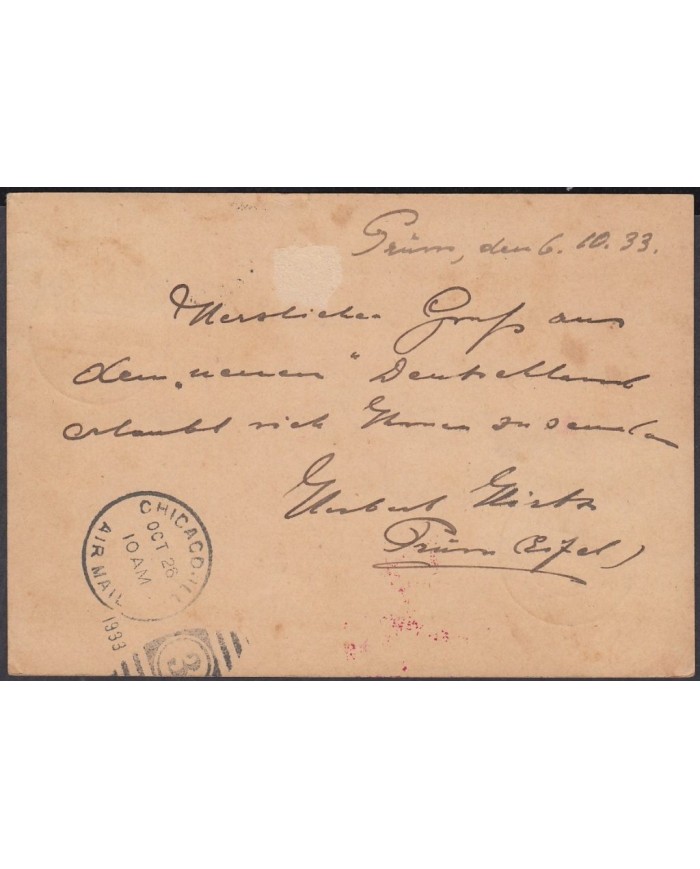 Prüm, den 6. 10. 33.
Herzlichen Gruß aus
dem „neuen" Deutschland
erlaubt sich Ihnen zu senden
Herbert
Prüm (Eifel)
CHICAGO, ILL
OCT 26
10 AM
AIR MAIL
1933
3